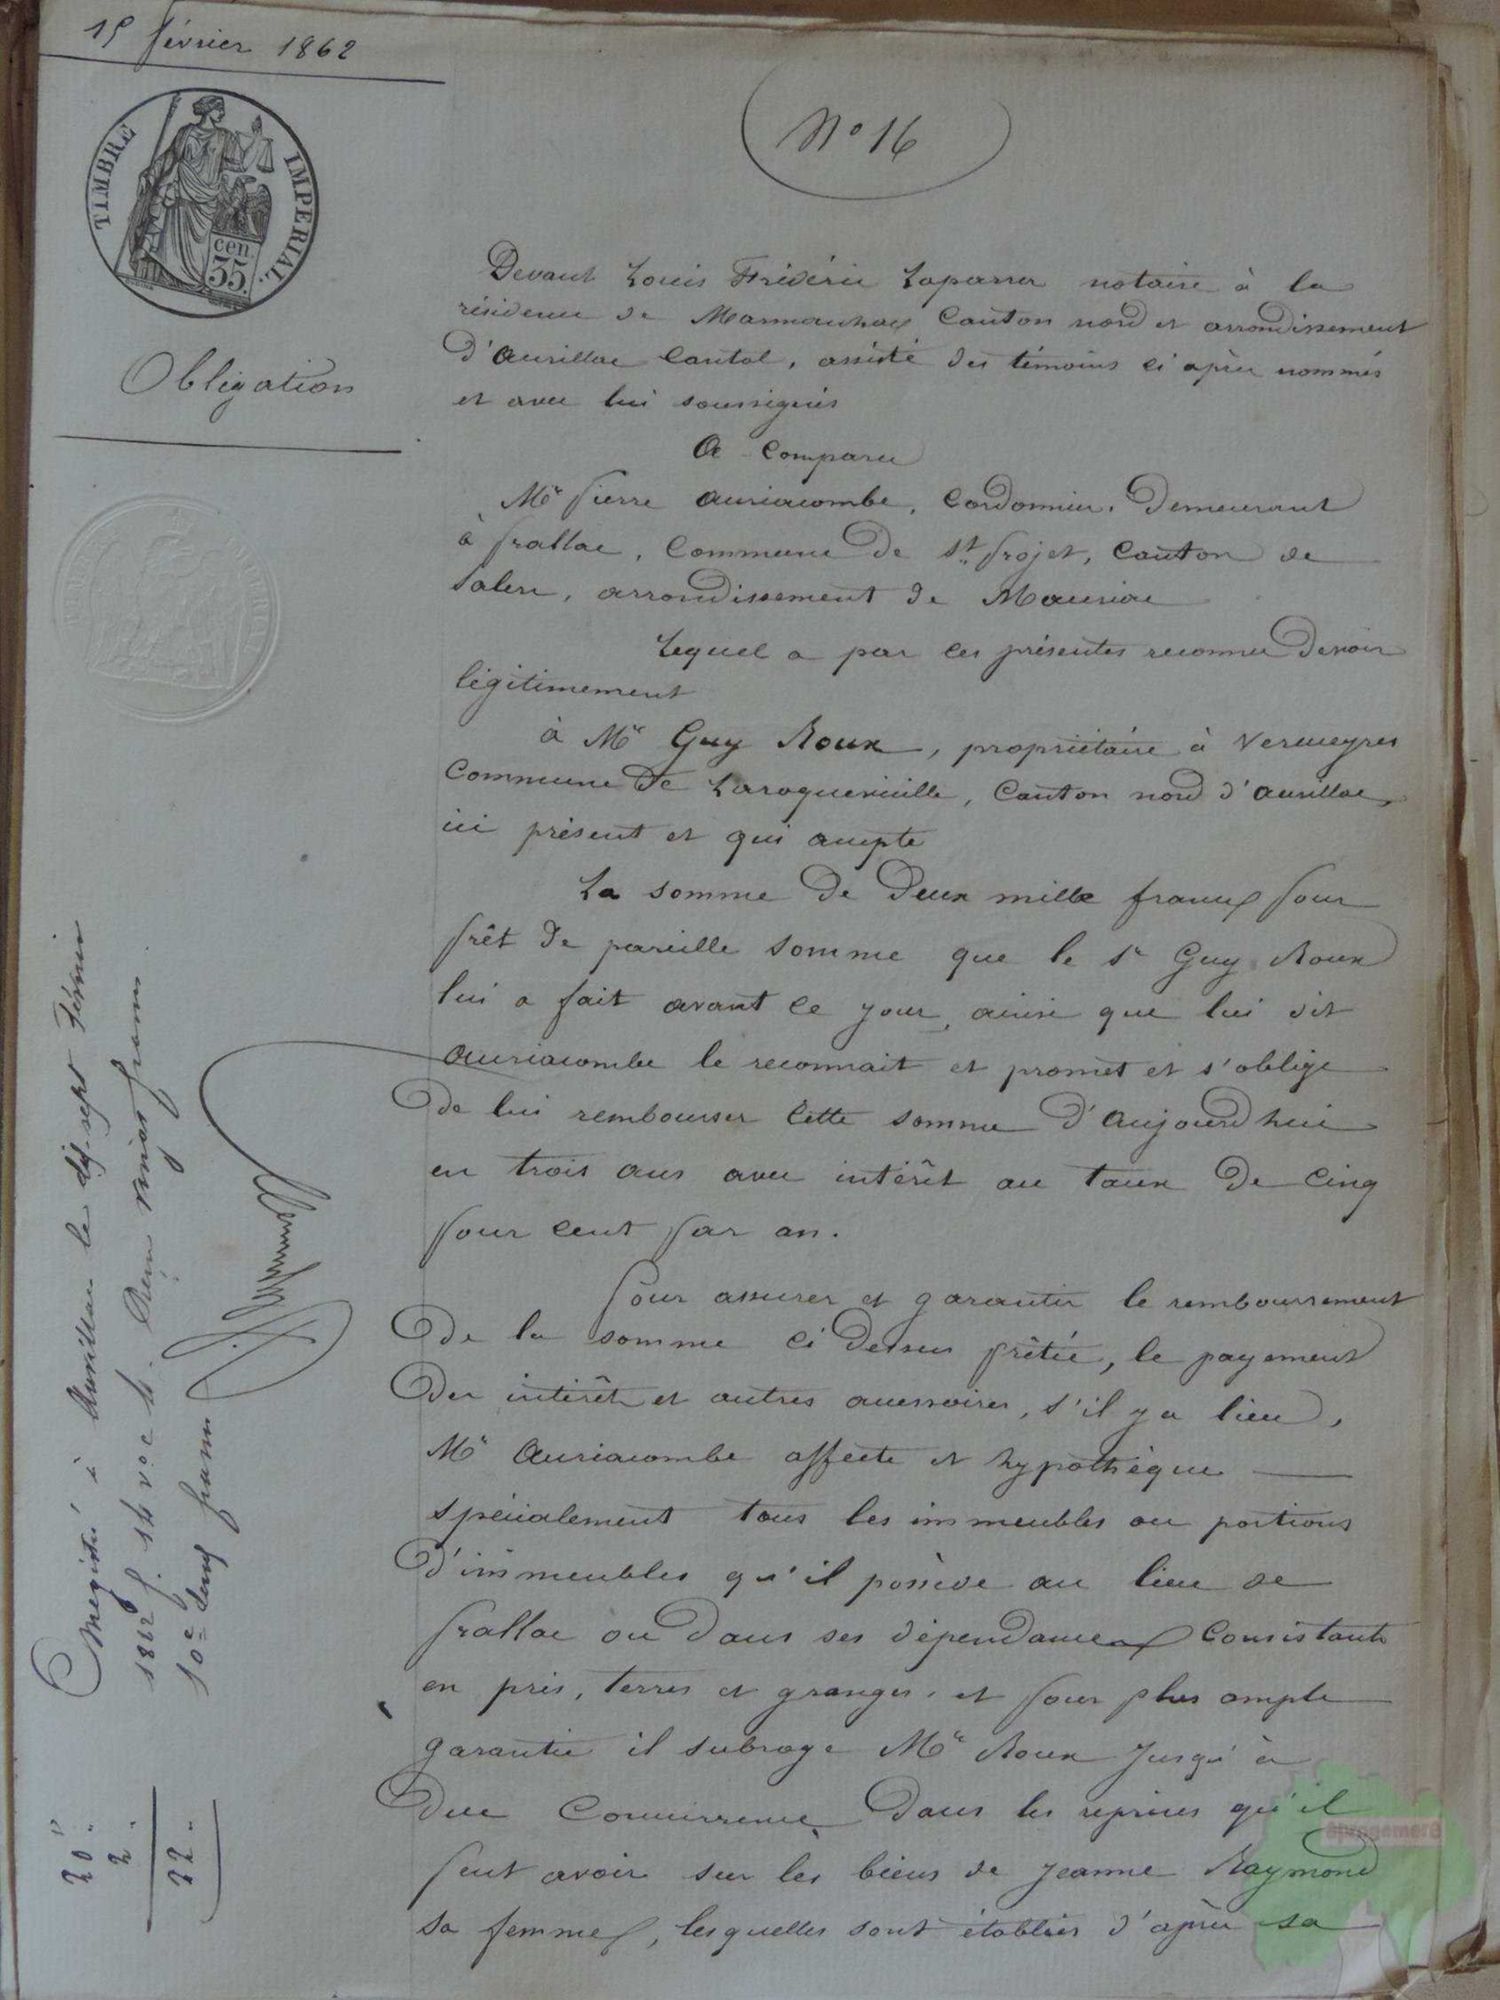 15 février 1862
TIMBRE IMPERIAL.
cen
35.
N° 16
Obligation
Devant Louis Frédéric Laparra notaire à la
résidence de Marmanhac Canton nord et arrondissement
d'aurillac Cantal, assisté des témoins ci après nommés
et avec lui soussignés
A Comparu
Mr Pierre auriacombe, Cordonnier, Demeurant
à Prallac, Commune De St Projet, Canton de
Salers, arrondissement de Mauriac
Lequel a par ces présentes reconnu Devoir
légitimement
à Mr Guy Roux, propriétaire à Vermeyres
Commune De Laroquevieille, Canton nord d'aurillac,
ici présent et qui accepte
La somme De Deux mille francs Pour
Prêt De pareille somme que le Sr Guy Roux
lui a fait avant ce jour, ainsi que lui dit
auriacombe le reconnait et promet et s'oblige
De lui rembourser Cette somme D'aujourd hui
en trois ans avec intérêt au taux De Cinq
Pour Cent Par an.
Pour assurer et garantir le remboursement
De la somme ci Dessus prêtée, le payement
Des intérêts et autres accessoires, s'il y a lieu,
Mr Auriacombe affecte et hypothèque
spécialement tous les immeubles ou portions
D'immeubles qu'il possède au lieu de
Prallac ou Dans ses dépendances Consistants
en prés, terres et granges, et Pour plus ample
garantie il subroge Mr Roux Jusqu'à
Due Concurrence Dans les reprises qu'il
Peut avoir sur les biens de Jeanne Raymond
sa femme, lesquelles sont établies d'après sa
Enregistré à Aurillac le dix-sept Février
1862 f. 14 vo c 4. Reçu vingt francs
10e deux francs
20 "
2 "
22 "
Geneagement